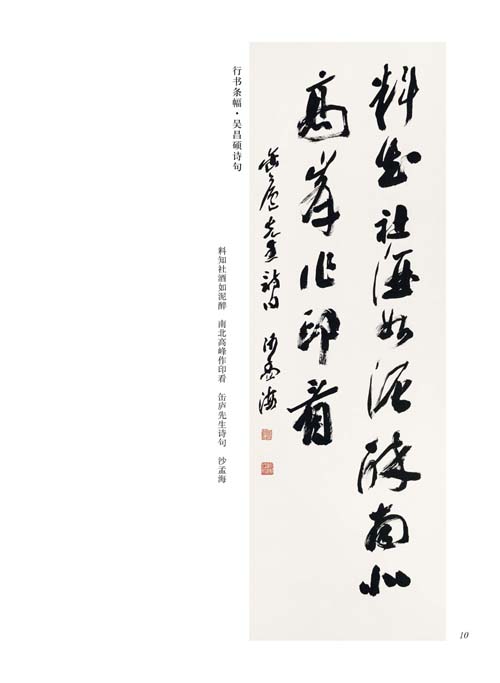 料知社酒如泥醉南北
高峰作印看
缶庐先生诗句 沙孟海
行书条幅·吴昌硕诗句
料知社酒如泥醉 南北高峰作印看 缶庐先生诗句 沙孟海
10